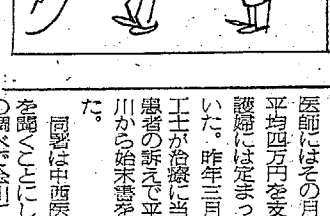 医師にはその月
平均四万円を支
護婦には定まっ
いた。昨年三月
工士が治療に当
患者の訴えで平
川から始末書を
た。
同署は中西医
を聞くことにし
の調べで全